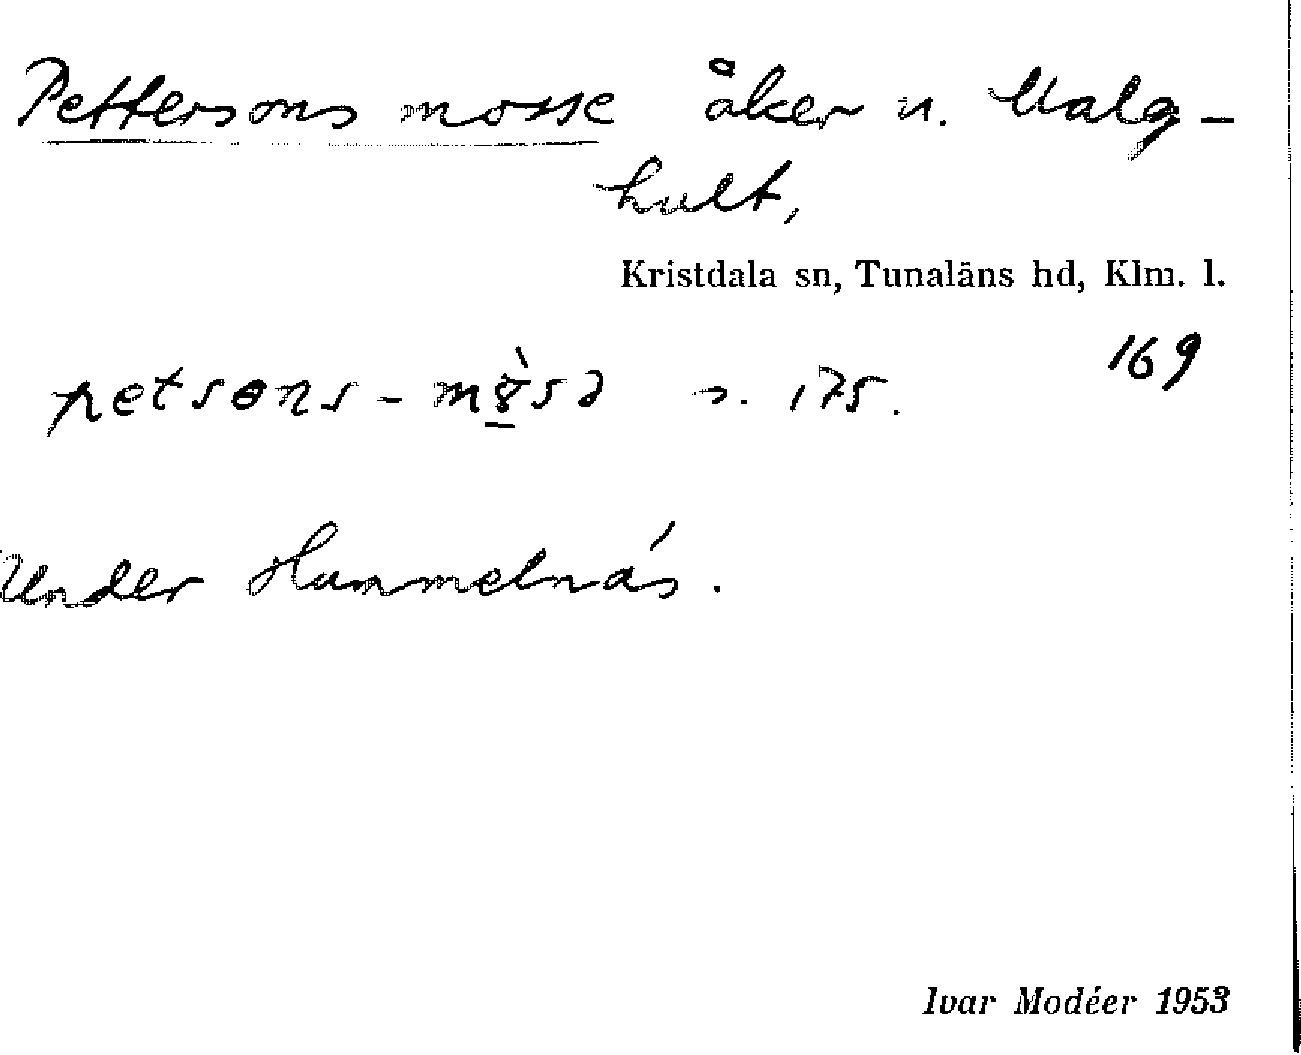 Pettersons mosse åker u. Malg-
hult,
Kristdala sn, Tunaläns hd, Klm. l.
169
petsɵns-m8̀sə s. 175.
Under Hummelnäs.
Ivar Modéer 1953